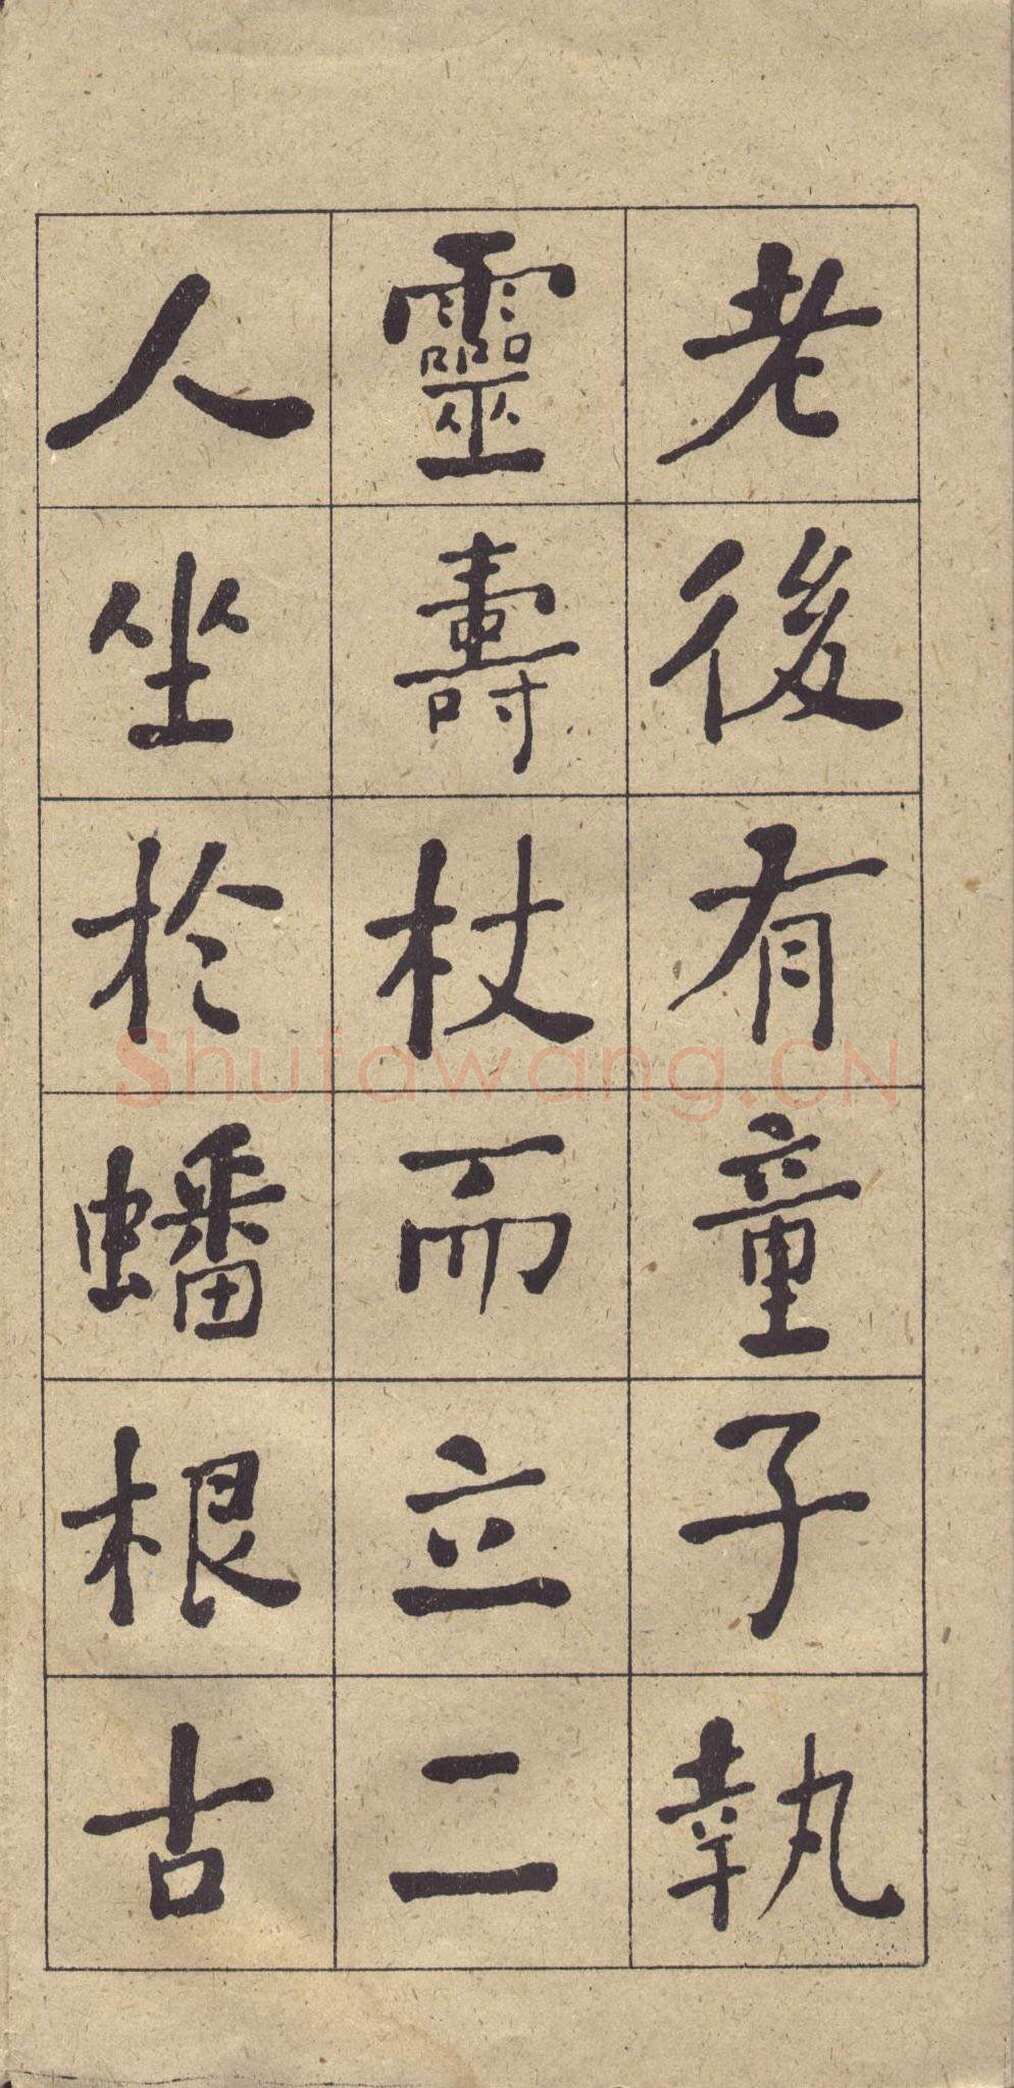 老後有童子執
靈壽杖而立二
人坐於蟠根古
Shufawang.CN